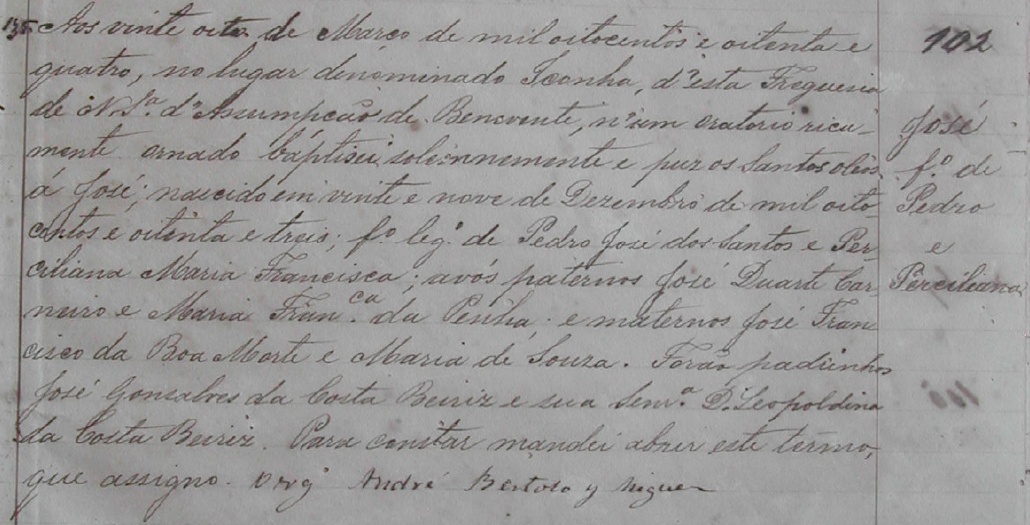 135 Aos vinte oito de Março de mil oitocentos e oitenta e
quatro, no lugar denominado Iconha, d'esta Freguesia
de N. Sª. d'Assumpção de Benevente, n'um oratorio rica-
mente ornado baptisei solemnemente e puz os Santos oleos
á José; nascido em vinte e nove de Dezembro de mil oito-
centos e oitenta e treis; fº. legº. de Pedro José dos Santos e Per-
ciliana Maria Francisca; avós paternos José Duarte Car-
neiro e Maria Fran.ca da Penha e maternos José Fran
cisco da Boa Morte e Maria de Souza. Forão padrinhos
José Gonsalves da Costa Beiriz e sua Senrª. D. Leopoldina
da Costa Beiriz. Para constar mandei abrir este termo,
que assigno. O Vigº André Bertolo y
102
José
fº. de
Pedro
e
Perciliana